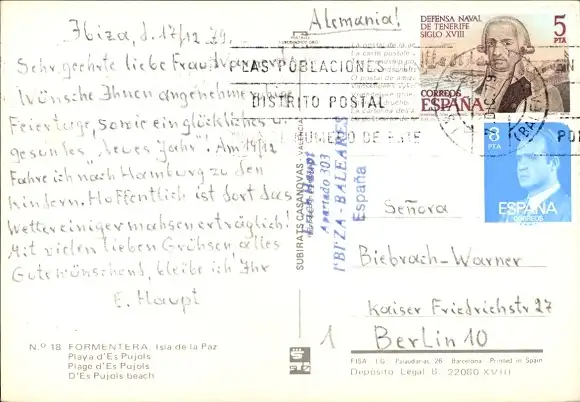 Ibiza, d. 17/12 79.
Sehr geehrte liebe Frau
Wünsche Ihnen angenehme
Feiertage, sowie ein glückliches u.
gesundes "neues Jahr"! Am 19/12
Fahre ich nach Hamburg zu den
Kindern. Hoffentlich ist dort das
Wetter einigermahsen erträglich!
Mit vielen lieben Grühsen alles
Gute wünschend, bleibe ich Ihr
E. Haupt
N.º 18. FORMENTERA. Isla de la Paz
Playa d'Es Pujols
Plage d'Es Pujols
D'Es Pujols beach
SUBIRATS CASANOVAS. VALENCIA
Haupt
Apartado 303
IBIZA-BALEARES
España
Alemania!
LAS POBLACIONES
DISTRITO POSTAL
NUMERO DE ESTE
DEFENSA NAVAL
DE TENERIFE
SIGLO XVIII
5
PTA
CORREOS
ESPAÑA
8
PTA
ESPAÑA
CORREOS
Señora
Biebrach-Warner
Kaiser Friedrichstr 27
1 Berlin 10
FISA I.G. Palaudarias, 26 Barcelona Printed in Spain
Depósito Legal B. 22080 XVIII